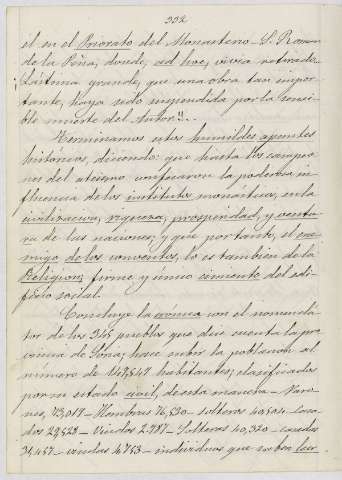 332
él en el Priorato del Monasterio S. Roman
de la Peña; donde, ad hoc, vivia retirado.
Lástima grande, que una obra tan impor-
tante, haya sido suspendida por la sensi-
ble muerte del Autor!!...
Terminamos estos humildes apuntes
históricos, diciendo: que hasta los campeo-
nes del ateismo confesaron la poderosa in-
fluencia de los institutos monásticos, en la
civilización, riqueza, prosperidad, y ventu-
ra de las naciones; y que por tanto, el ene-
migo de los conventos, lo es tambien de la
Religion; firme y único cimiento del edi-
ficio social.
Concluye la crónica con el nomenclá-
tor de los 345 pueblos que dice cuenta la pro-
vincia de Soria; hace subir la poblacion al
número de 147,549 habitantes; clasificados
por su estado civil, de esta manera – Varo-
nes, 73,019 – Hembras 74,530 – solteros 40,504 – casa-
dos 29,528 – Viudos 2.987 – Solteras 40,320 – casadas
29,457 – viudas 4,753 – individuos que saben leer